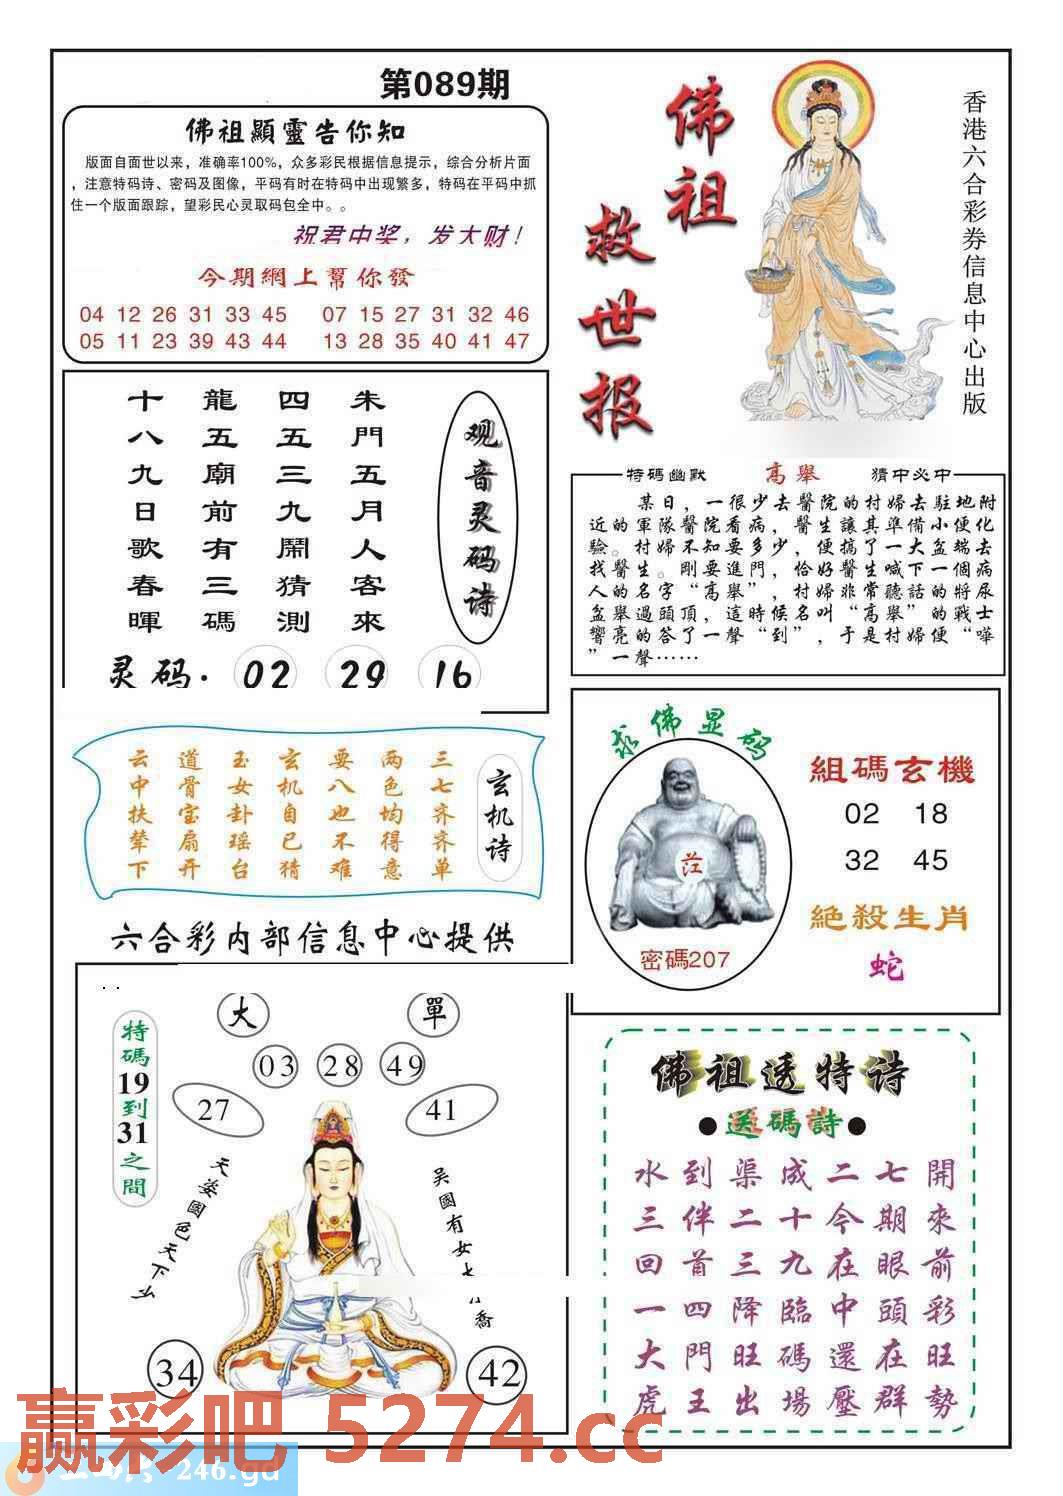 第089期
佛祖顯靈告你知
版面自面世以来，准确率100%，众多彩民根据信息提示，综合分析片面
，注意特码诗、密码及图像，平码有时在特码中出现繁多，特码在平码中抓
住一个版面跟踪，望彩民心灵取码包全中。。
祝君中奖，发大财！
今期網上幫你發
04 12 26 31 33 45 07 15 27 31 32 46
05 11 23 39 43 44 13 28 35 40 41 47
佛祖
救世报
香港六合彩券信息中心出版
观音灵码诗
朱門五月人客來
四五三九鬧猜測
龍五廟前有三碼
十八九日歌春暉
灵码. 02 29 16
特碼幽默 高舉 猜中必中
某日，一很少去醫院的村婦去駐地附
近的軍隊醫院看病，醫生讓其準備小便化
驗。村婦不知要多少，便搞了一大盆端去
找醫生。剛要進門，恰好醫生喊下一個病
人的名字“高舉”，村婦非常聽話的將尿
盆舉過頭頂，這時候名叫“高舉”的戰士
響亮的答了一聲“到”，于是村婦便“嘩
”一聲……
玄机诗
三七齐齐单
两色均得意
要八也不难
玄机自已猜
玉女卦瑶台
道骨宝扇开
云中扶辇下
求佛显码
密碼207
組碼玄機
02 18
32 45
絕殺生肖
蛇
六合彩内部信息中心提供
特碼19到31之間
大 單
03 28 49
27 41
天姿國色天下
吴國有女
喬
34 42
佛祖透特诗
●送碼詩●
水到渠成二七開
三伴二十今期來
回首三九在眼前
一四降臨中頭彩
大門旺碼還在旺
虎王出場壓群勢
赢彩吧 5274.cc
246.gd